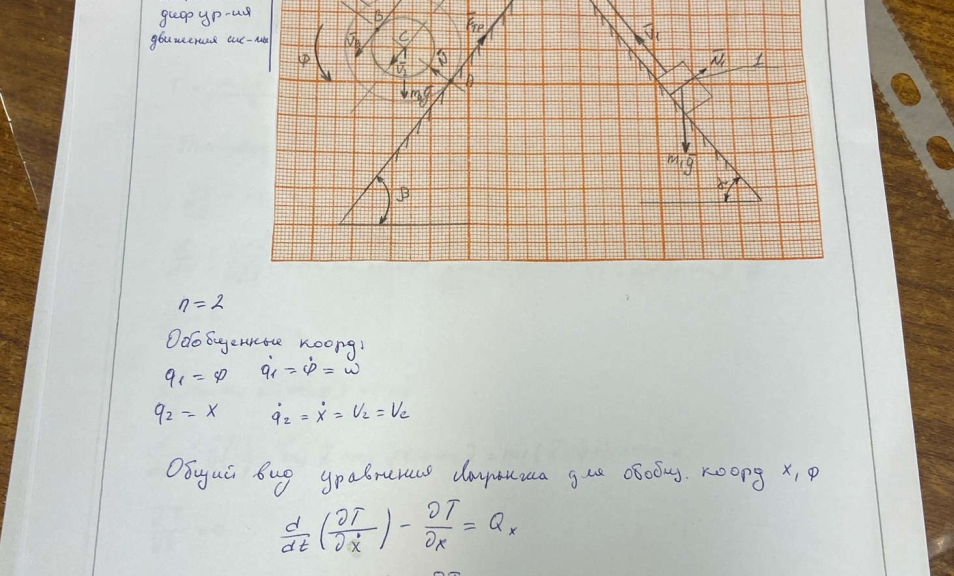 диф ур-ия
движения сис-мы
B
C
φ
m₂g
F̄тр
V̄₁
N̄₁
1
m₁ḡ
β
α
n = 2
Обобщенные коорд:
q₁ = φ q̇₁ = φ̇ = ω
q₂ = x q̇₂ = ẋ = V₂ = Vc
Общий вид уравнения Лагранжа для обобщ. коорд x, φ
d/dt (∂T/∂ẋ) - ∂T/∂x = Qₓ